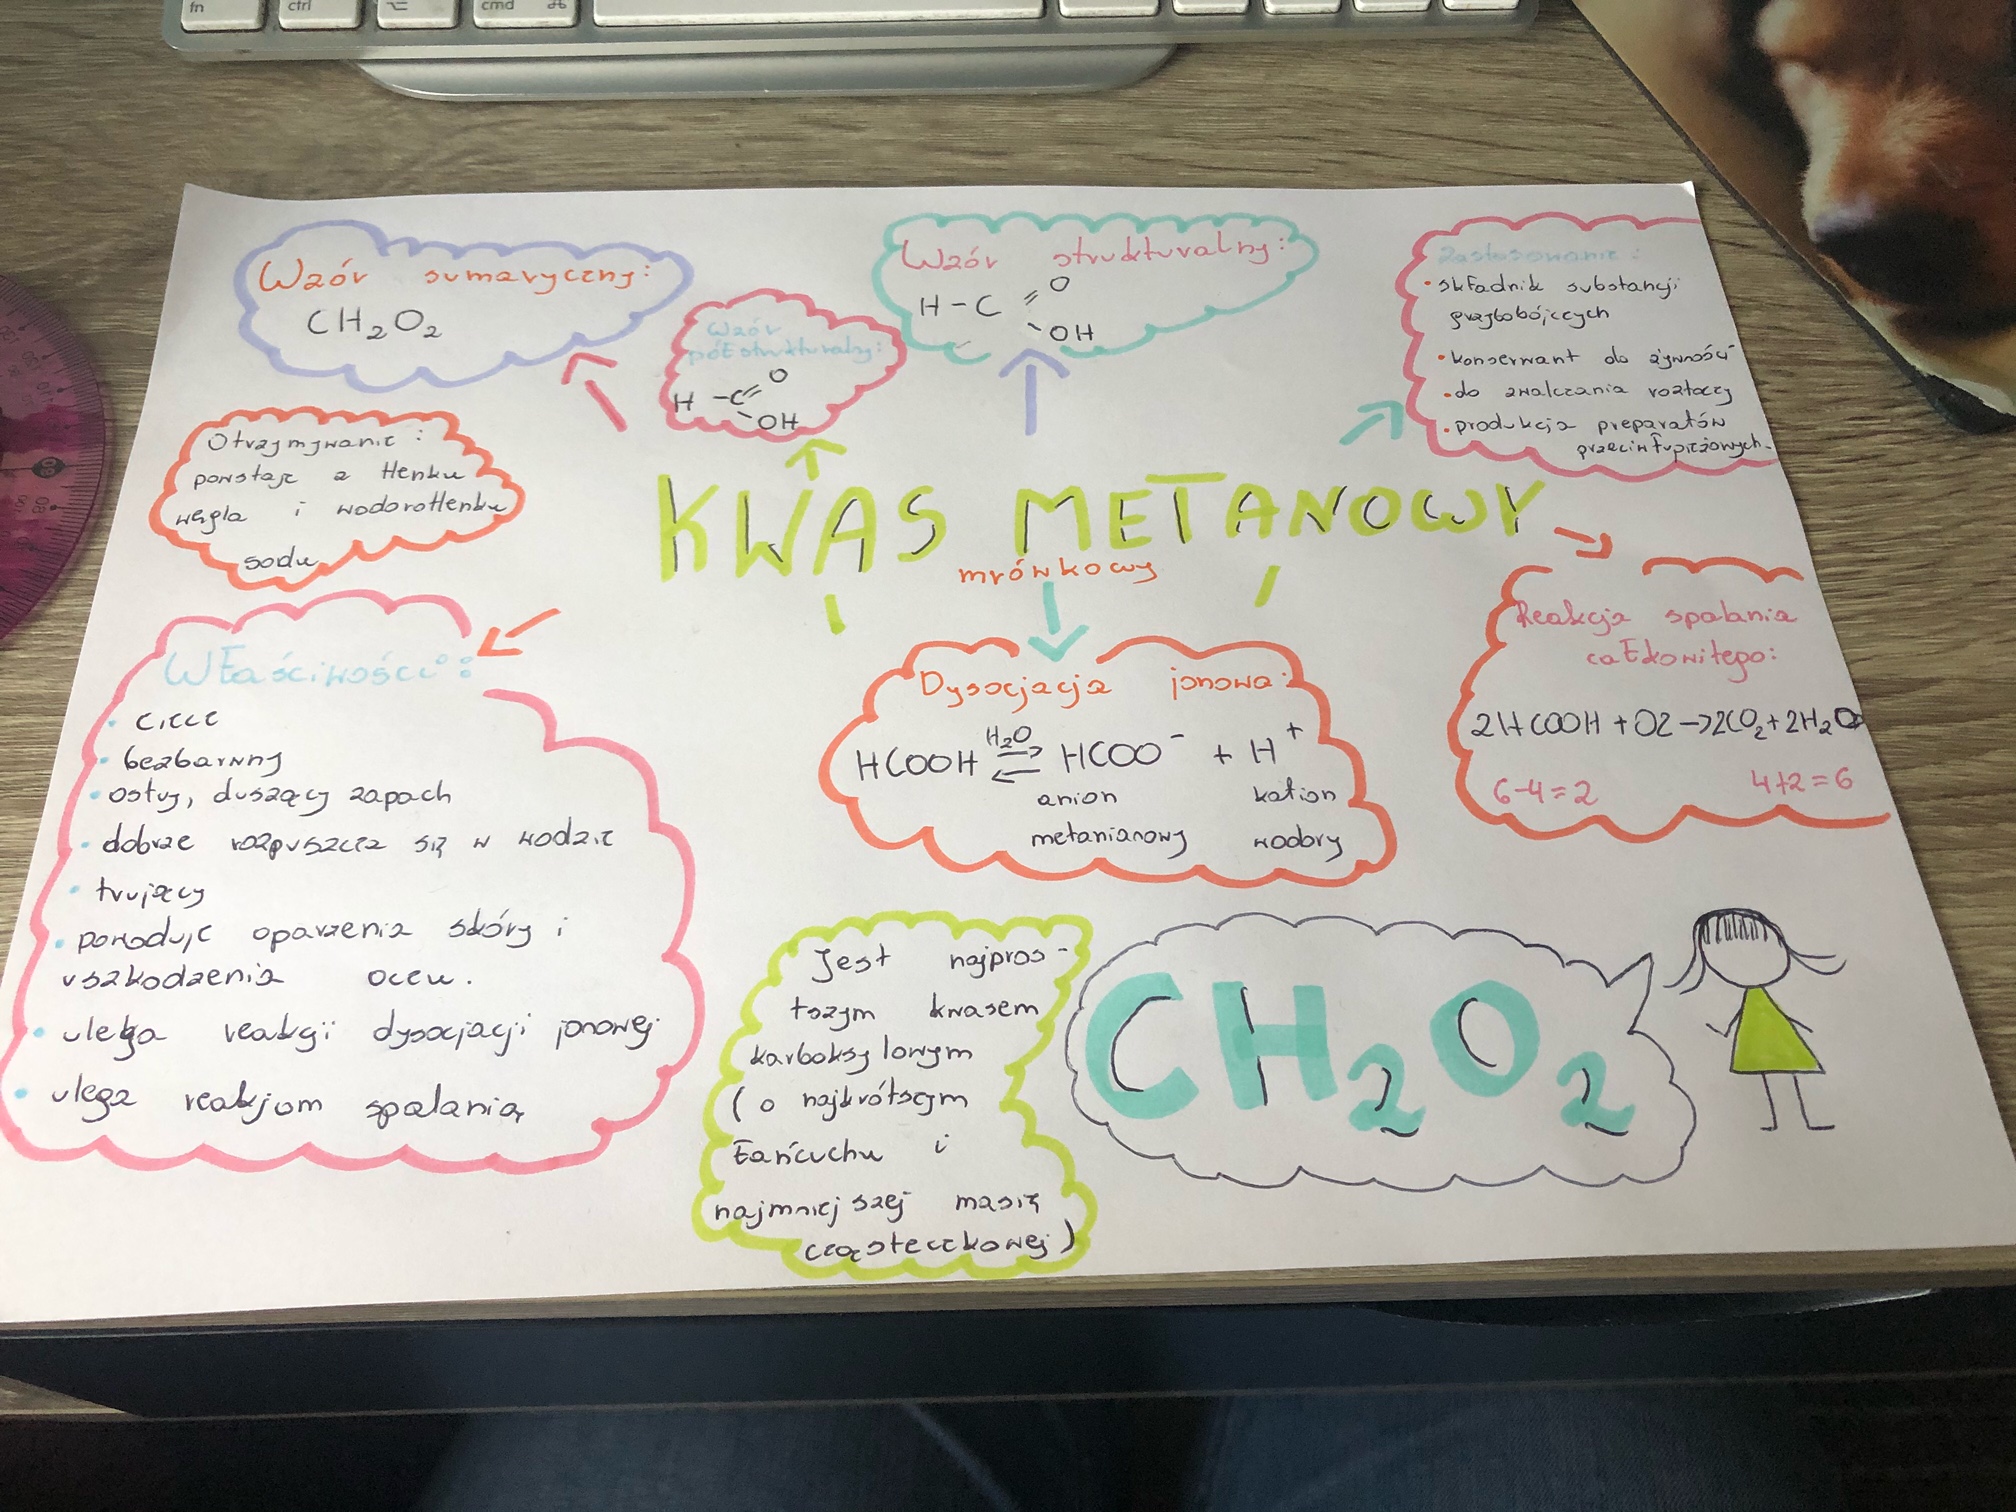 fn
ctrl
⌥
cmd ⌘
Wzór sumaryczny:
CH₂O₂
Wzór
półstrukturalny:
H-C=O
-OH
Wzór strukturalny:
H-C=O
-OH
Zastosowanie:
• składnik substancji
grzybobójczych
• konserwant do żywności
• do zwalczania roztoczy
• produkcja preparatów
przeciwłupieżowych
Otrzymywanie:
powstaje z tlenku
węgla i wodorotlenku
sodu
KWAS METANOWY
mrówkowy
Właściwości:
• ciecz
• bezbarwny
• ostry, duszący zapach
• dobrze rozpuszcza się w wodzie
• trujący
• powoduje oparzenia skóry i
uszkodzenia oczu.
• ulega reakcji dysocjacji jonowej
• ulega reakcjom spalania
Dysocjacja jonowa:
HCOOH ⇌ H₂O HCOO⁻ + H⁺
anion kation
metanianowy wodory
Reakcja spalania
całkowitego:
2HCOOH + O2 → 2CO₂ + 2H₂O
6-4=2 4+2=6
Jest najpros-
tszym kwasem
karboksylowym
(o najkrótszym
łańcuchu i
najmniejszej masie
cząsteczkowej)
CH₂O₂